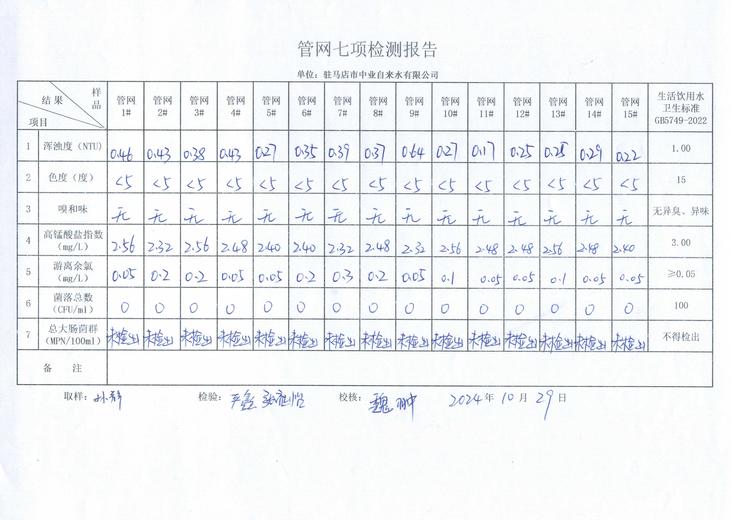 管网七项检测报告
单位：驻马店市中业自来水有限公司
结果 样品 项目 管网1# 管网2# 管网3# 管网4# 管网5# 管网6# 管网7# 管网8# 管网9# 管网10# 管网11# 管网12# 管网13# 管网14# 管网15# 生活饮用水卫生标准GB5749-2022
1 浑浊度（NTU） 0.46 0.43 0.38 0.43 0.27 0.35 0.39 0.37 0.64 0.27 0.17 0.25 0.28 0.29 0.22 1.00
2 色度（度） <5 <5 <5 <5 <5 <5 <5 <5 <5 <5 <5 <5 <5 <5 <5 15
3 嗅和味 无 无 无 无 无 无 无 无 无 无 无 无 无 无 无 无异臭、异味
4 高锰酸盐指数（mg/L） 2.56 2.32 2.56 2.48 2.40 2.40 2.32 2.48 2.32 2.56 2.48 2.48 2.56 2.48 2.40 3.00
5 游离余氯（mg/L） 0.05 0.2 0.2 0.05 0.05 0.2 0.3 0.2 0.05 0.1 0.05 0.05 0.1 0.05 0.05 ≥0.05
6 菌落总数（CFU/ml） 0 0 0 0 0 0 0 0 0 0 0 0 0 0 0 100
7 总大肠菌群（MPN/100ml） 未检出 未检出 未检出 未检出 未检出 未检出 未检出 未检出 未检出 未检出 未检出 未检出 未检出 未检出 未检出 不得检出
备 注
取样： 检验：严鑫 校核：魏翀 2024年10月29日